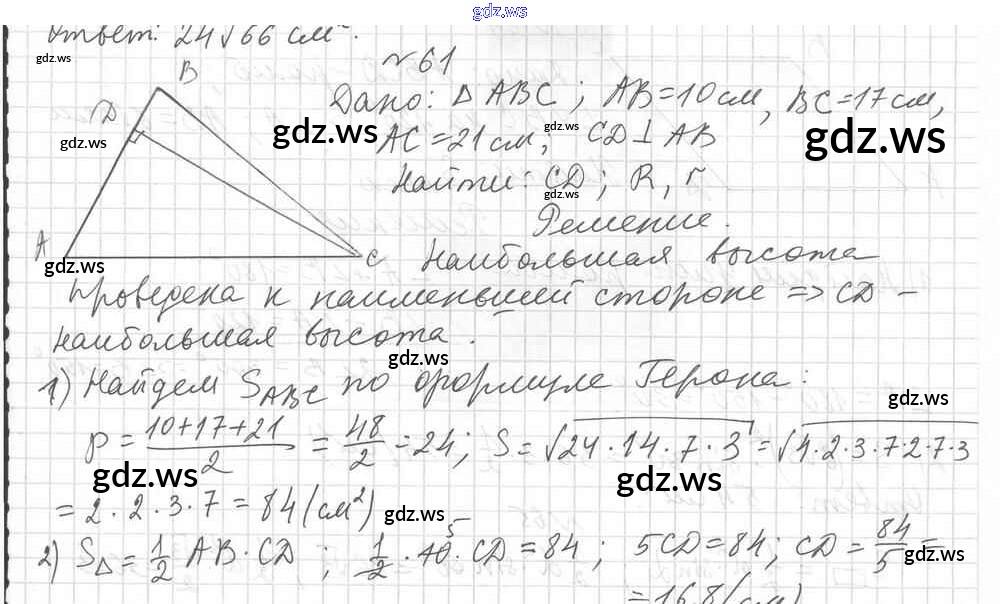 gdz.ws
Ответ: 24√66 см².
gdz.ws
№61
B
D
A
C
gdz.ws
Дано: Δ ABC; AB=10см, BC=17см,
gdz.ws gdz.ws gdz.ws
AC=21см; CD⊥AB
Найти: CD; R, r
gdz.ws
Решение.
gdz.ws gdz.ws
Наибольшая высота
проведена к наименьшей стороне => CD –
наибольшая высота.
gdz.ws
1) Найдем S_ABC по формуле Герона:
gdz.ws
p = (10+17+21)/2 = 48/2 = 24; S = √(24·14·7·3) = √(4·2·3·7·2·7·3)
gdz.ws gdz.ws
= 2·2·3·7 = 84 (см²)
gdz.ws
2) S_Δ = 1/2 AB·CD; 1/2·10·CD = 84; 5CD = 84; CD = 84/5 =
5
gdz.ws
= 16,8 (см)